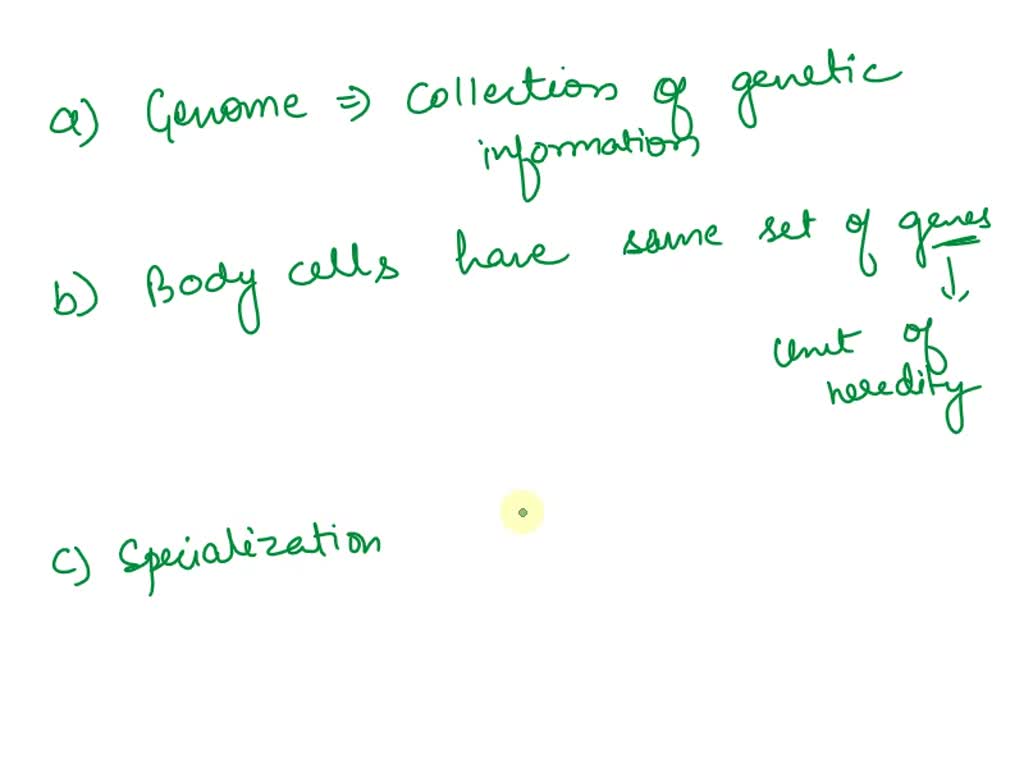 a) Genome ⇒ collection of genetic
information
b) Body cells have same set of genes
↓
unit of
heredity
c) Specialization